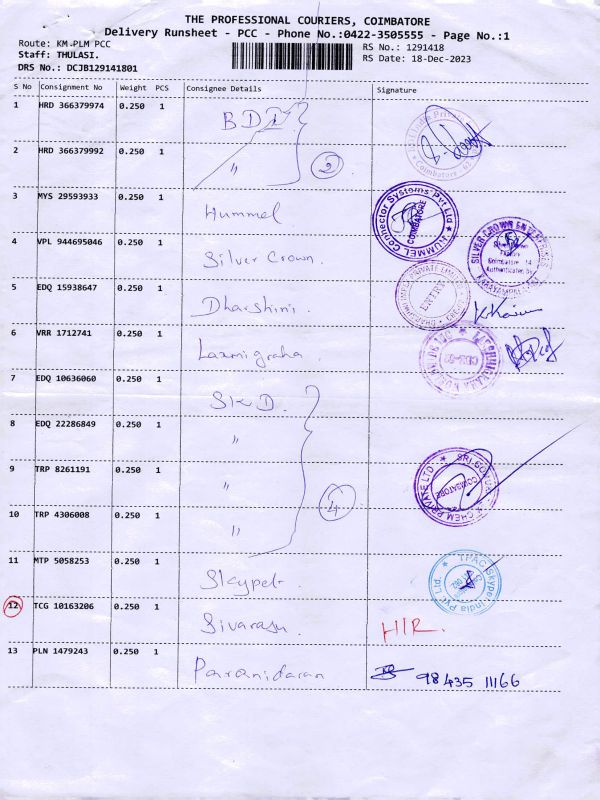 THE PROFESSIONAL COURIERS, COIMBATORE
Delivery Runsheet - PCC - Phone No.:0422-3505555 - Page No.:1
Route: KM-PLM PCC
RS No.: 1291418
Staff: THULASI.
RS Date: 18-Dec-2023
DRS No.: DCJB129141801
S No Consignment No Weight PCS Consignee Details Signature
1 HRD 366379974 0.250 1 BDI
2 HRD 366379992 0.250 1 " 2
Coimbatore
3 MYS 29593933 0.250 1 Hummel
HUMMEL Connector Systems Pvt Ltd
COIMBATORE
4 VPL 944695046 0.250 1 Silver Crown.
SILVER CROWN ENTERPRISES
5 EDQ 15938647 0.250 1 Dharshini.
PRIVATE LIMITED
6 VRR 1712741 0.250 1 Laxmigraha.
7 EDQ 10636060 0.250 1 SKD.
8 EDQ 22286849 0.250 1 "
9 TRP 8261191 0.250 1 "
CHEM PRIVATE LTD
COIMBATORE
10 TRP 4306008 0.250 1 " 4
11 MTP 5058253 0.250 1 Skypet.
TPAC Skype India Pvt Ltd.
12 TCG 10163206 0.250 1 Sivarasu. H/R.
13 PLN 1479243 0.250 1 Paranidaran 98435 11166